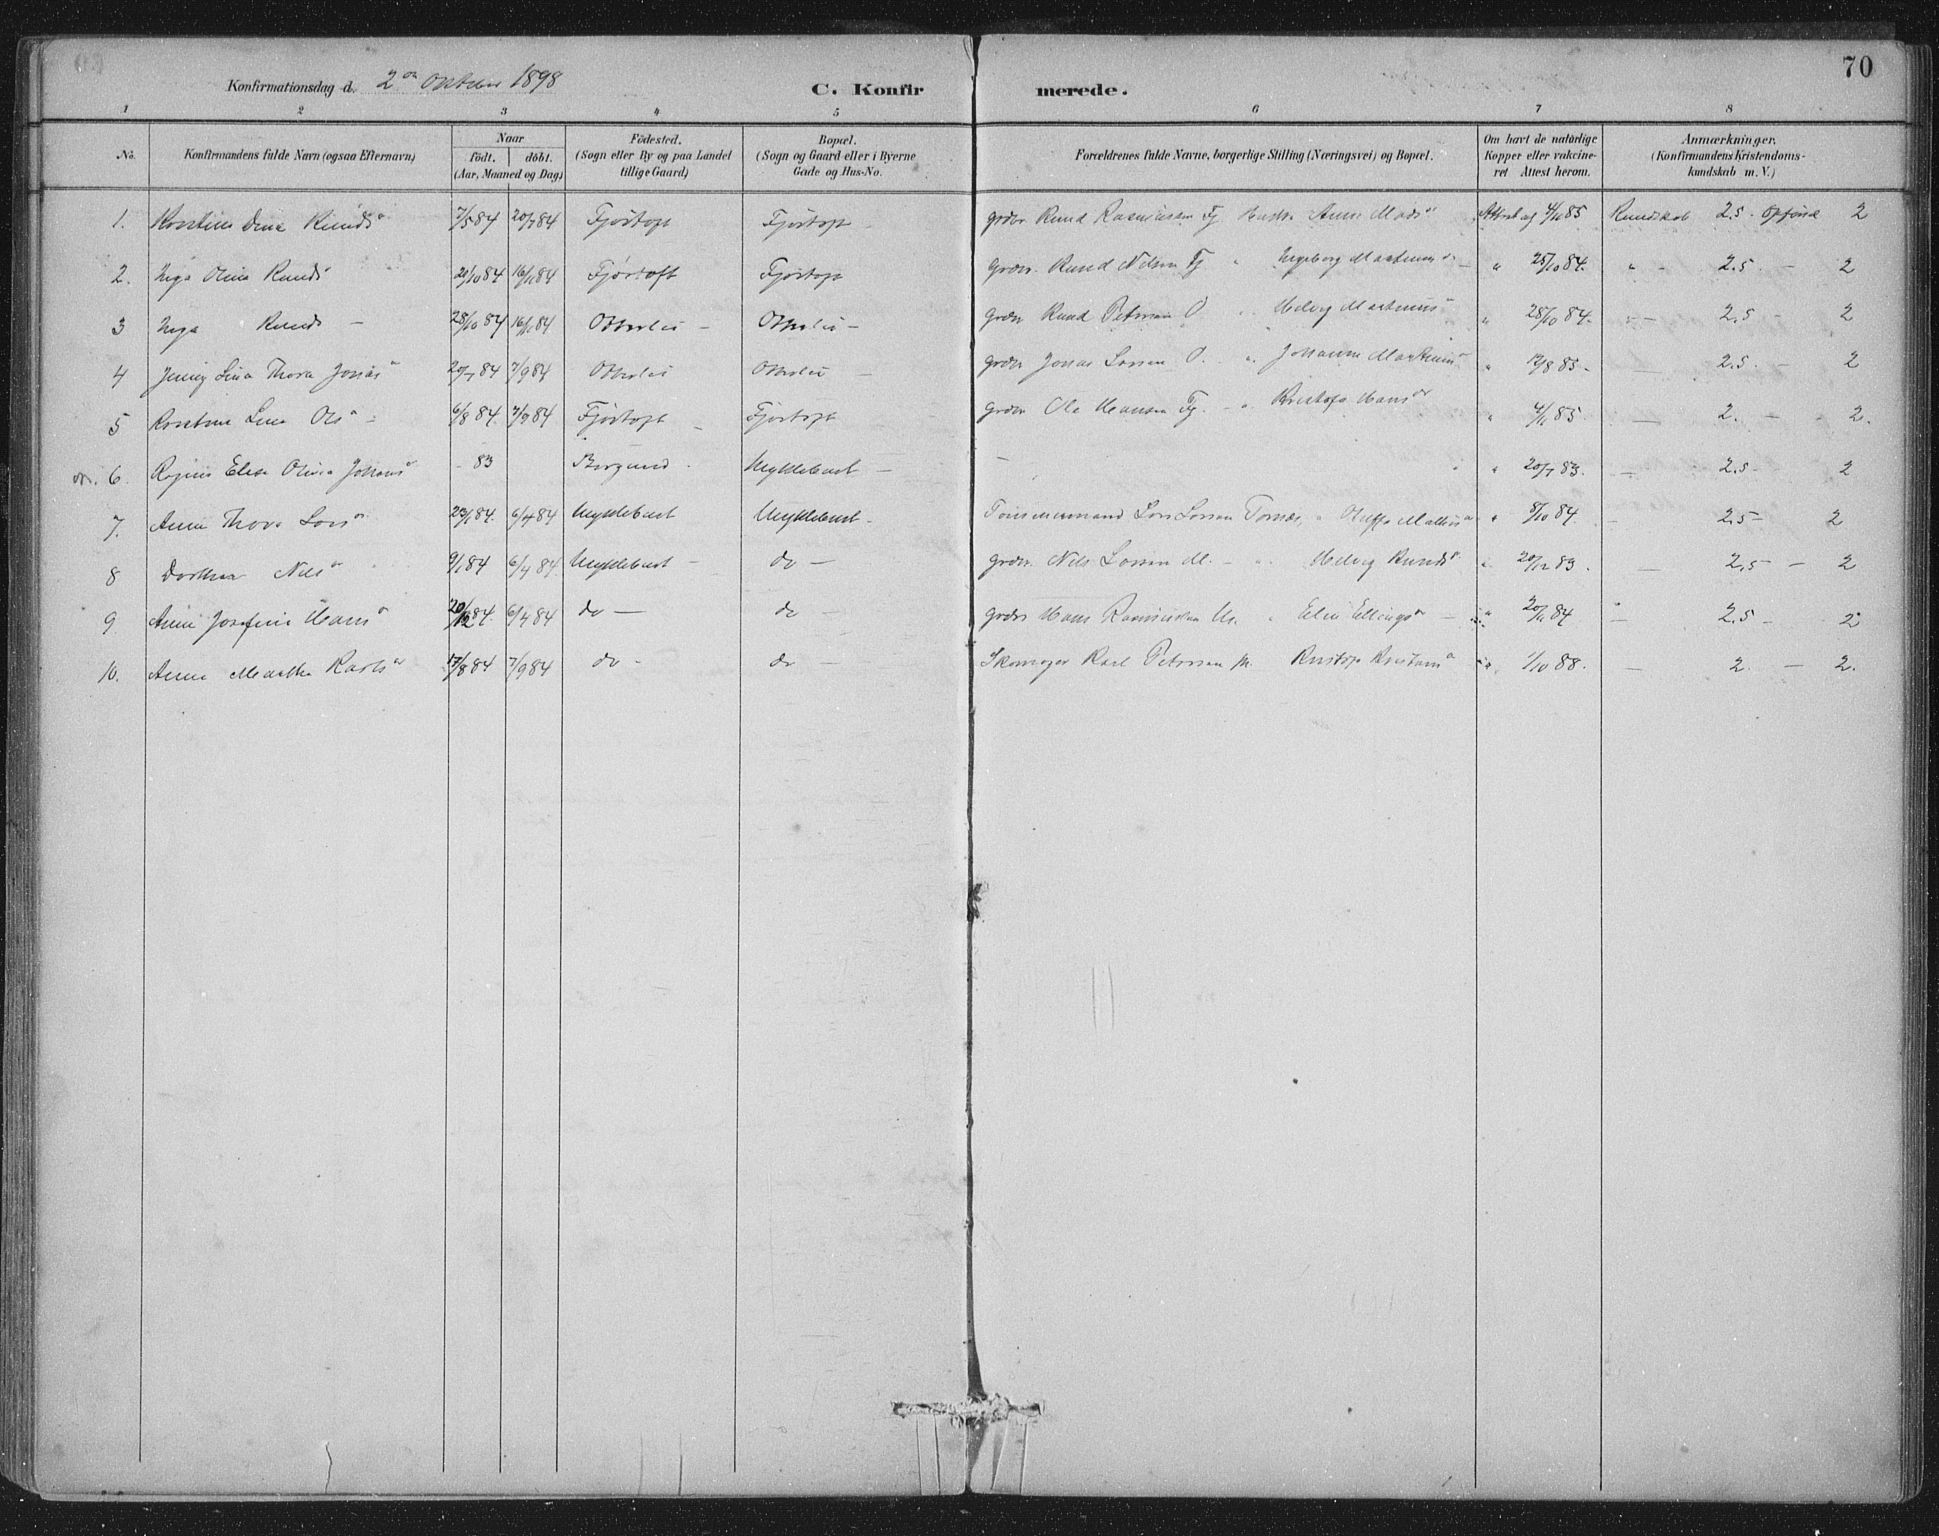 70
Konfirmationsdag d. 2den Oktober 1898 C. Konfir merede.
1 2 3 4 5 6 7 8
No. Konfirmandens fulde Navn (ogsaa Efternavn) Naar födt. döbt. (Aar, Maaned og Dag) Födested. (Sogn eller By og paa Landet tillige Gaard) Bopæl. (Sogn og Gaard eller i Byerne Gade og Hus-No. Forældrenes fulde Navne, borgerlige Stilling (Næringsvei) og Bopæl. Om havt de natürlige Kopper eller vakcineret Attest herom. Anmærkninger. (Konfirmandens Kristendomskundskab m. V.)
1. Kristine Dina Knuds 7/5 84 20/7 84 Fjörtoft Fjörtoft grdbr Knud Rasmussen Fj Hustru Anne Mads Attest af 4/11 85 Kundskab 2.5 Opförsel 2
2. Inga Olina Knuds 20/10 84 16/11 84 Fjörtoft Fjörtoft grdbr. Knud Nilsen Fj. " Ingeborg Martinus " 25/10 84. " - 2.5 - 2
3 Inga Knuds - 28/10 84 16/11 84 Otterlei - Otterlei - grdbr Knud Petersen O " Helvig Martinus " 28/10 84. 2.5 - 2
4 Jenny Lina Thora Jonas 20/7 84 7/9 84 Otterlei Otterlei - grdbr Jonas Larsen O. " Johanne Martinus " 12/8 85 - 2.5 - 2
5 Kristine Lina Ols - 6/8 84. 7/9 84 Fjörtoft - Fjörtoft grdbr Ole Hansen Fj. - " Kristofa Hans " 4/11 85. - 2. - 2.
6. Regine Elise Olina Johans - 83 Borgund. Myklebust - - " " 20/7 83. - 2.5 - 2
7. Anne Thora Lars 23/1 84. 6/4 84 Myklebust Myklebust - Tömmermand Lars Larsen " " 8/10 84. - 2.5 - 2
8 Dorthea Nils 9/1 84 6/4 84 Myklebust - do - grdbr. Nils Larsen M. - " Helvig Knuds " 20/12 83. - 2,5 - 2
9. Anne Josefine Hans 84. 6/4 84 do - do - grdbr Hans Rasmussen M. " Elen Ellings - " 20/11 84 - 2.5 - 2
10. Anne Martha Karls 17/8 84 7/9 84 do - do - Skomager Karl Petersen M. Kristofa Kristens " 1/10 88. - 2. - 2.